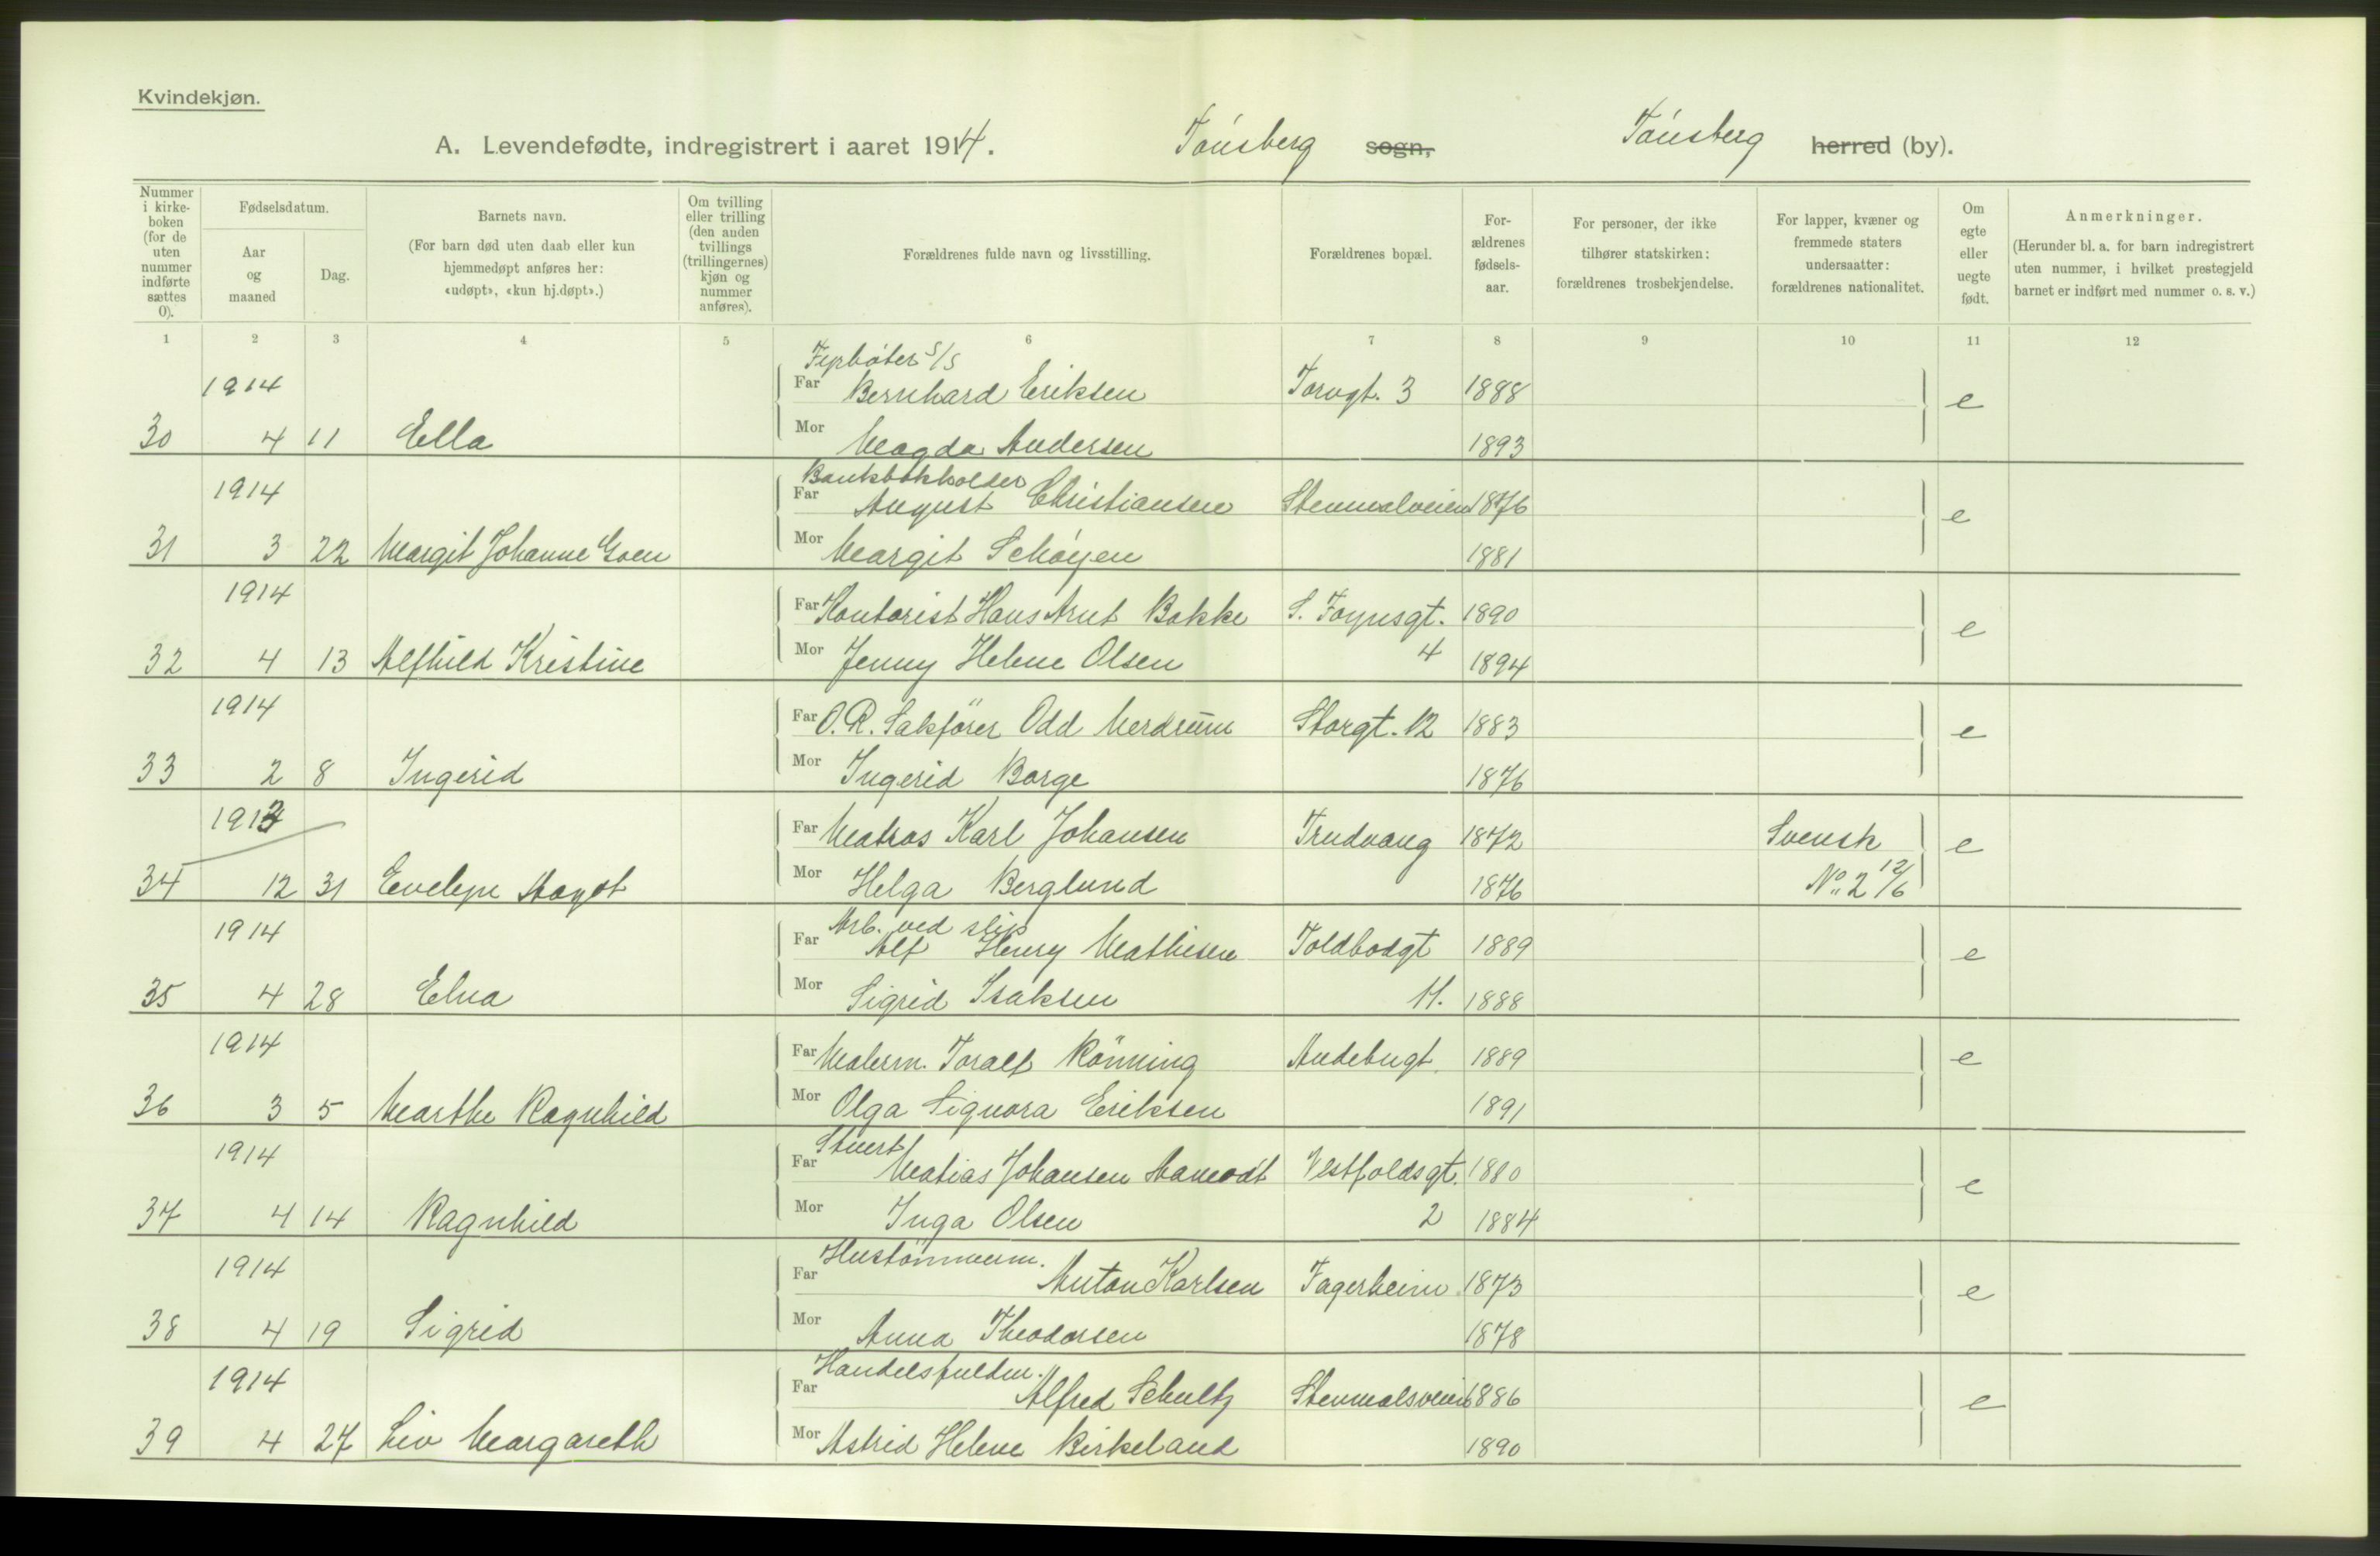 Kvindekjøn.
A. Levendefødte, indregistrert i aaret 1914. Tønsberg sogn, Tønsberg herred (by).
Nummer i kirkeboken (for de uten nummer indførte sættes 0).
Fødselsdatum.
Aar og maaned
Dag.
Barnets navn.
(For barn død uten daab eller kun hjemmedøpt anføres her: «udøpt», «kun hj.døpt».)
Om tvilling eller trilling (den anden tvillings (trillingernes) kjøn og nummer anføres).
Forældrenes fulde navn og livsstilling.
Forældrenes bopæl.
Forældrenes fødselsaar.
For personer, der ikke tilhører statskirken: forældrenes trosbekjendelse.
For lapper, kvæner og fremmede staters undersaatter: forældrenes nationalitet.
Om egte eller uegte født.
Anmerkninger.
(Herunder bl. a. for barn indregistrert uten nummer, i hvilket prestegjeld barnet er indført med nummer o. s. v.)
1 2 3 4 5 6 7 8 9 10 11 12
Fyrbøter S/S
1914 Far Bernhard Eriksen Torvgt. 3 1888 e
30 4 11 Ella Mor Magda Andersen 1893
Bankbokholder
1914 Far August Christiansen Stenmalveien 1876 e
31 3 22 Margit Johanne Goen Mor Margit Schøyen 1881
1914 Far Kontorist Hans Arnt Bakke S. Foynsgt. 1890 e
32 4 13 Alfhild Kristine Mor Jenny Helene Olsen 4 1894
1914 Far O.R. Sakfører Odd Merdrum Storgt. 12 1883 e
33 2 8 Ingerid Mor Ingerid Borge 1876
1913 Far Matros Karl Johansen Trudvang 1872 Svensk e
34 12 31 Evelyn Mor Helga Berglund 1876 No. 2 12/6
Arb. ved slip
1914 Far Alf Henry Mathisen Toldbodgt 1889 e
35 4 28 Elna Mor Sigrid Isaksen 11. 1888
1914 Far Malerm. Toralf Rönning Andebugt. 1889 e
36 3 5 Marthe Ragnhild Mor Olga Signora Eriksen 1891
Stuert
1914 Far Matias Johansen Vestfoldsgt. 1880 e
37 4 14 Ragnhild Mor Inga Olsen 2 1884
Hustømmerm.
1914 Far Anton Karlsen Fagerheim 1873 e
38 4 19 Sigrid Mor Anna Theodorsen 1878
Handelsfuldm.
1914 Far Alfred Schultz Stenmalsveien 1886 e
39 4 27 Liv Margareth Mor Astrid Helene Birkeland 1890